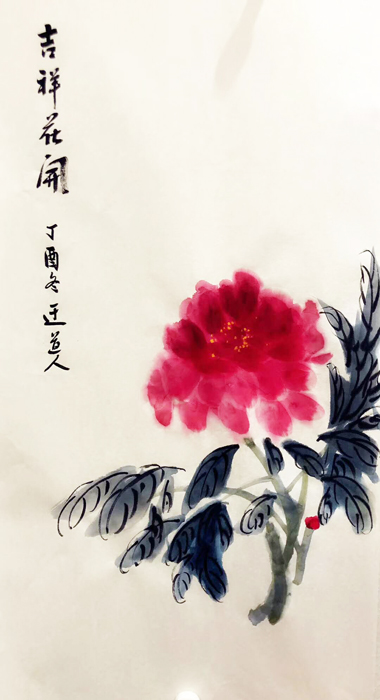 吉祥花開
丁酉冬迂道人